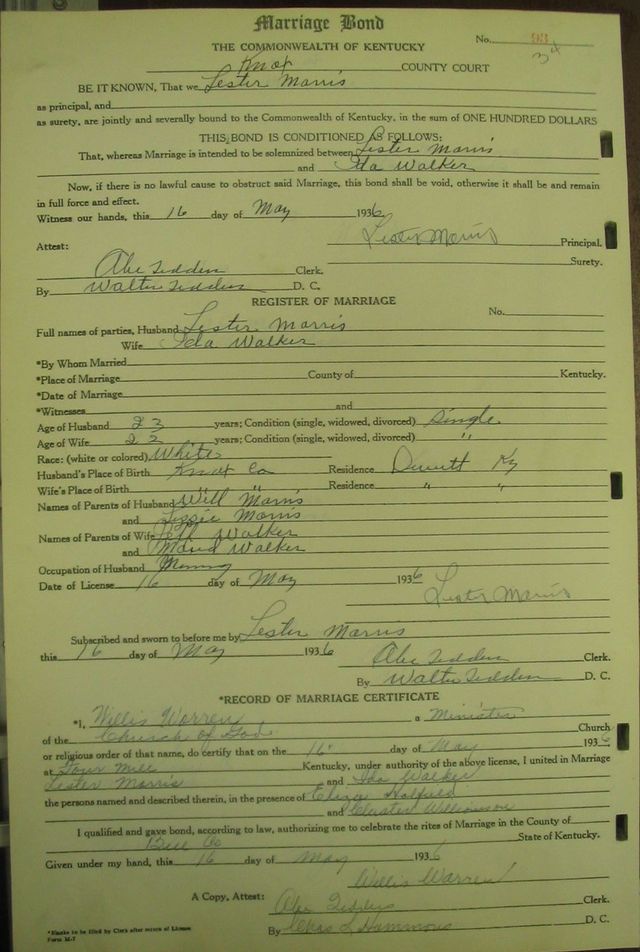 Marriage Bond
No. 93
34
THE COMMONWEALTH OF KENTUCKY
Knox COUNTY COURT
BE IT KNOWN, That we Lester Morris
as principal, and
as surety, are jointly and severally bound to the Commonwealth of Kentucky, in the sum of ONE HUNDRED DOLLARS
THIS BOND IS CONDITIONED AS FOLLOWS:
That, whereas Marriage is intended to be solemnized between Lester Morris
and Ida Walker
Now, if there is no lawful cause to obstruct said Marriage, this bond shall be void, otherwise it shall be and remain
in full force and effect.
Witness our hands, this 16 day of May 1936
Lester Morris Principal.
Attest:
Surety.
Abe Tedders Clerk.
By Walter Tedders D. C.
REGISTER OF MARRIAGE
No.
Full names of parties, Husband Lester Morris
Wife Ida Walker
*By Whom Married
*Place of Marriage County of Kentucky.
*Date of Marriage
*Witnesses and
Age of Husband 23 years; Condition (single, widowed, divorced) Single
Age of Wife 22 years; Condition (single, widowed, divorced) "
Race: (white or colored) White
Husband's Place of Birth Knox Co Residence Dewitt Ky
Wife's Place of Birth " " Residence " "
Names of Parents of Husband Will Morris
and Lizzie Morris
Names of Parents of Wife Walker
and Maud Walker
Occupation of Husband Mining
Date of License 16 day of May 1936
Lester Morris
Subscribed and sworn to before me by Lester Morris
this 16 day of May 1936
Abe Tedders Clerk.
By Walter Tedders D. C.
*RECORD OF MARRIAGE CERTIFICATE
*I, Willis Warren a Minister
of the Church of God Church
or religious order of that name, do certify that on the 16 day of May 1936
at Four Mile Kentucky, under authority of the above license, I united in Marriage
Lester Morris and Ida Walker
the persons named and described therein, in the presence of Eliza
and Williamson
I qualified and gave bond, according to law, authorizing me to celebrate the rites of Marriage in the County of
Bell Co State of Kentucky.
Given under my hand, this 16 day of May 1936
Willis Warren
A Copy, Attest: Abe Tedders Clerk.
By Chas L Hammons D. C.
*Blanks to be filled by Clerk after return of License
Form M-7